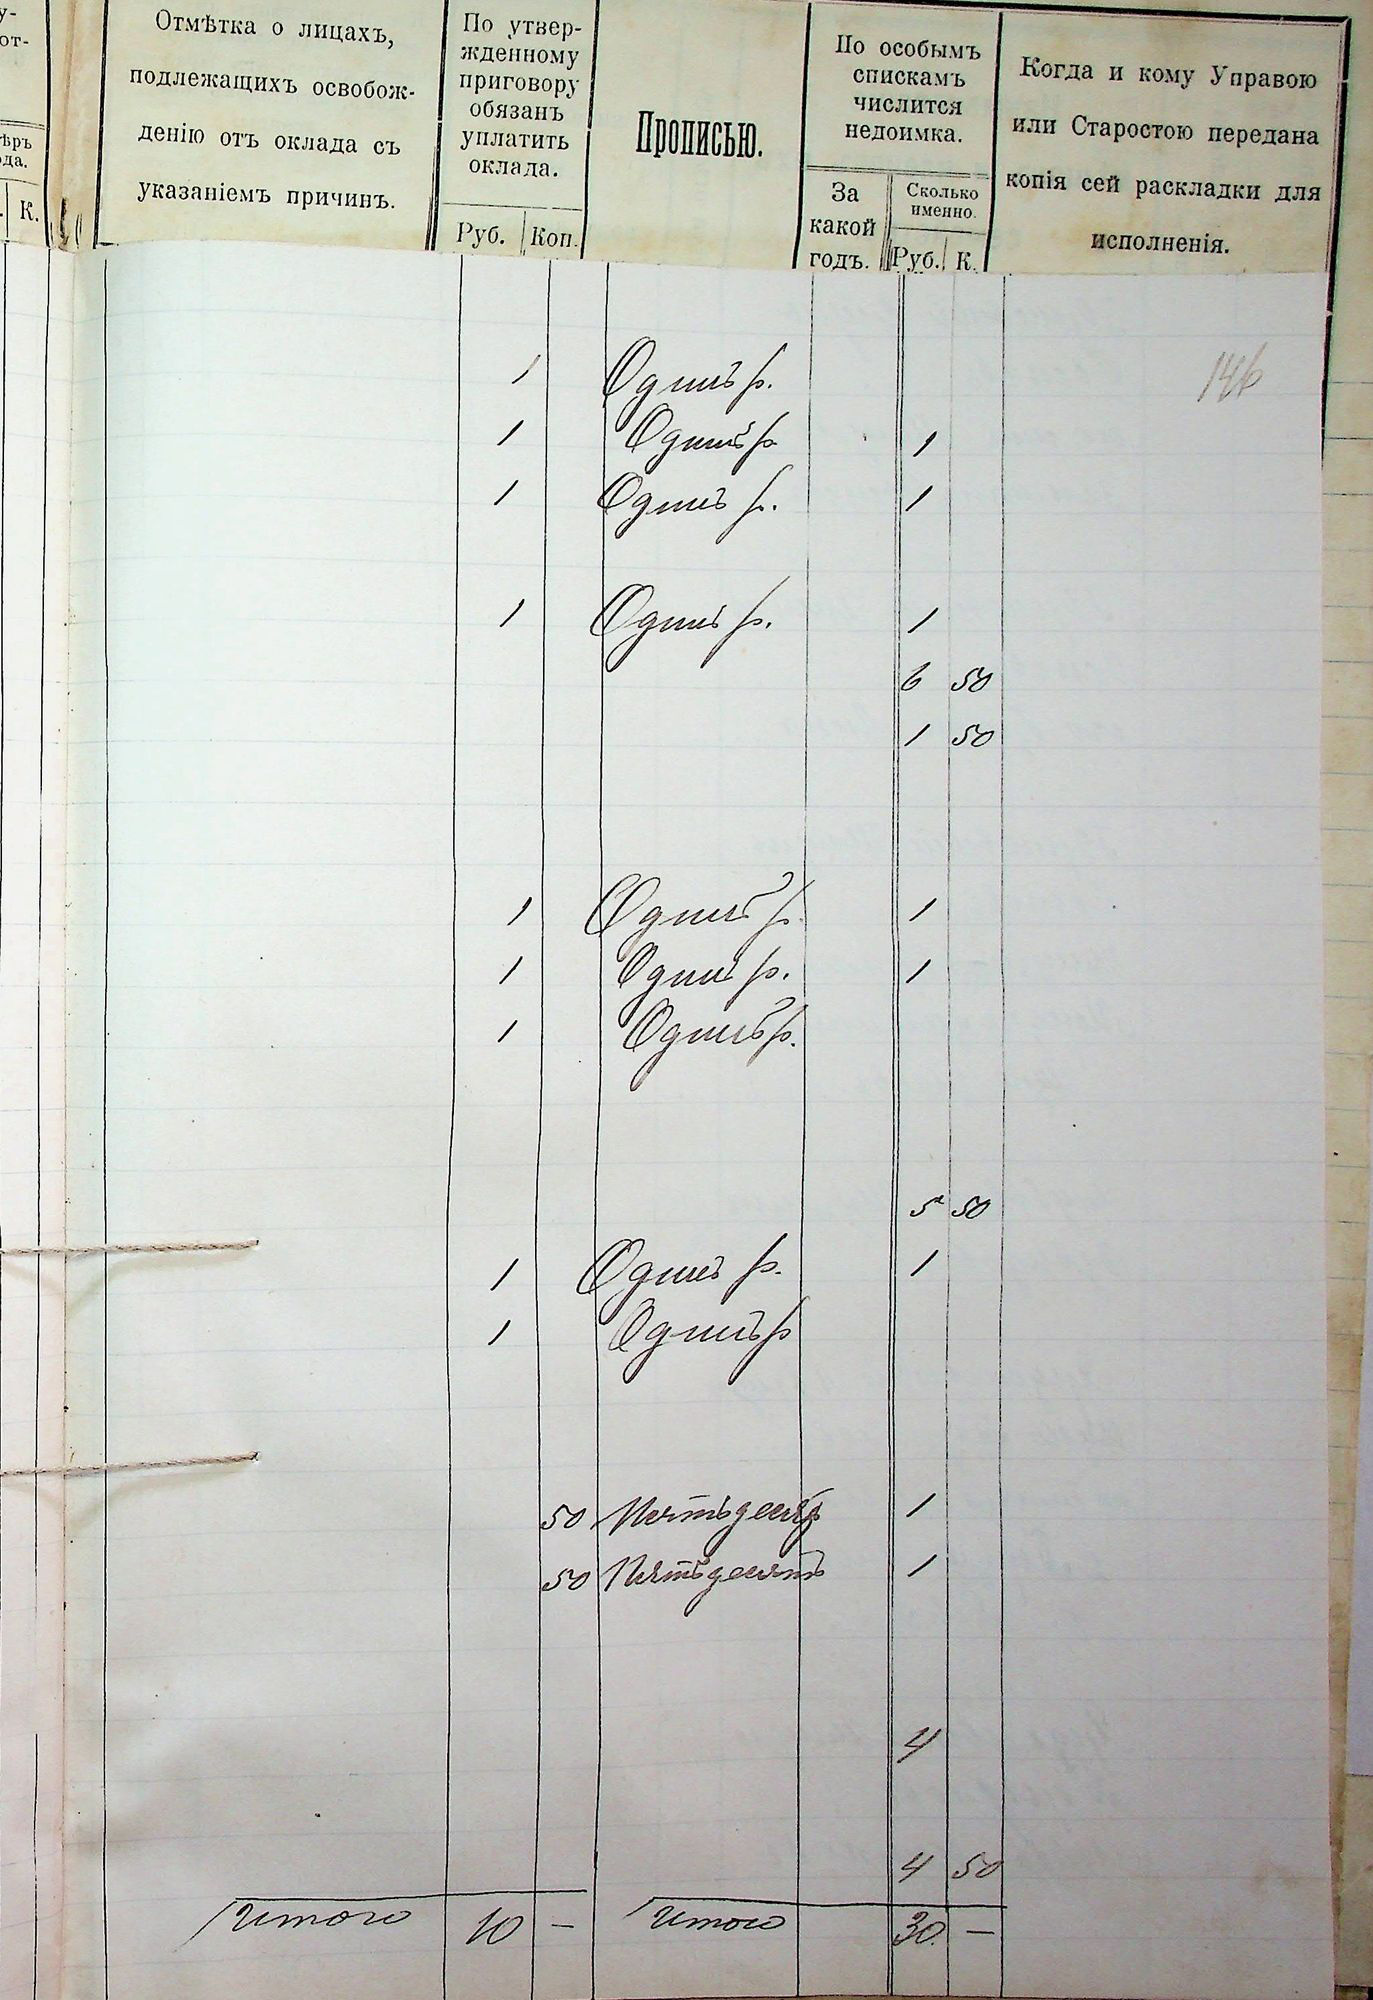 у-
от-
ѣръ
ода.
К.
Отмѣтка о лицахъ,
подлежащихъ освобож-
денію отъ оклада съ
указаніемъ причинъ.
По утвер-
жденному
приговору
обязанъ
уплатить
оклада.
Руб. Коп.
Прописью.
По особымъ
спискамъ
числится
недоимка.
За
какой
годъ.
Сколько
именно.
Руб. К.
Когда и кому Управою
или Старостою передана
копія сей раскладки для
исполненія.
146
1 Одинъ р.
1 Одинъ р 1
1 Одинъ р. 1
1 Одинъ р. 1
6 50
1 50
1 Одинъ р. 1
1 Одинъ р. 1
1 Одинъ р.
5 50
1 Одинъ р. 1
1 Одинъ р
50 1
50 Пятьдесятъ 1
4
4 50
Итого 10 — Итого 30. —